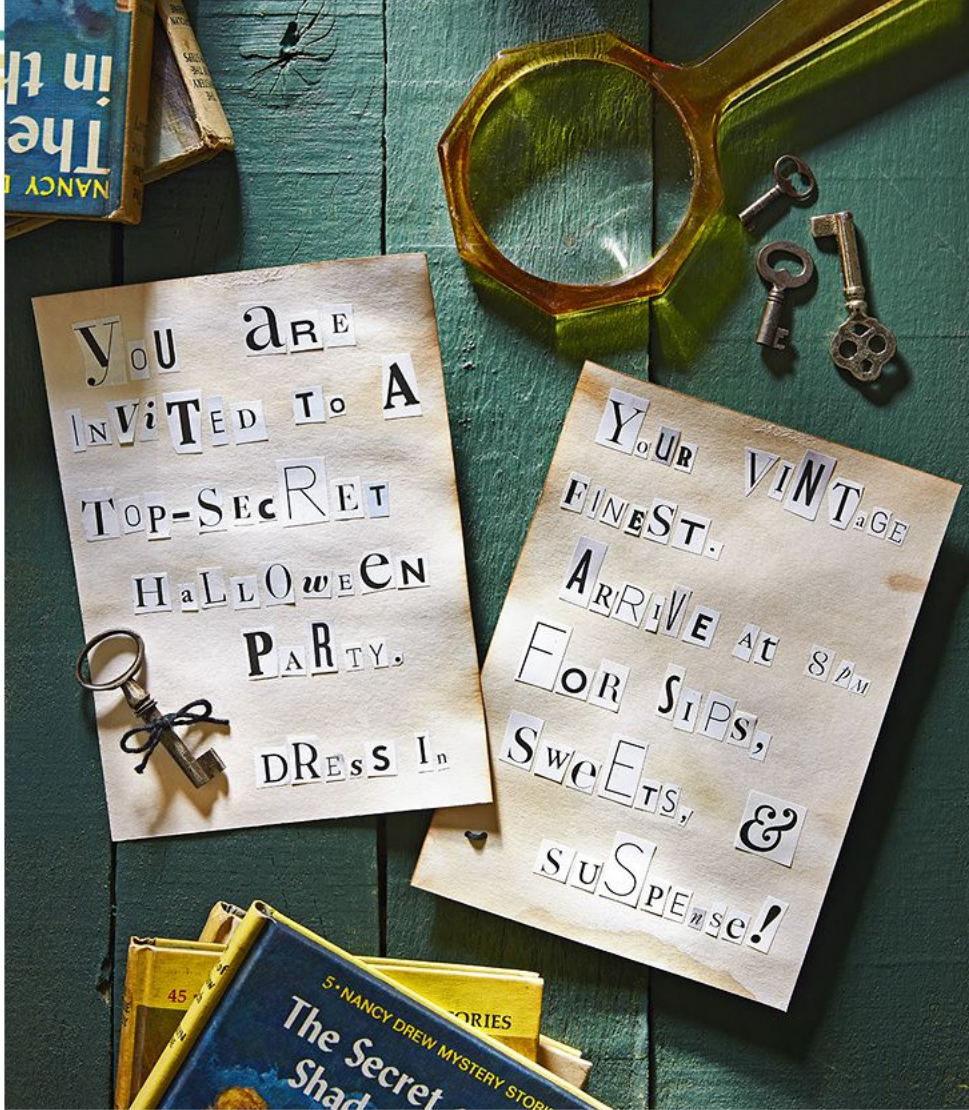 The
in th
NANCY
yoU aRE
InViTED To A
ToP-SEcRET
HaLLOwEeN
PARTY.
DREsS In
YoUR VINTaGE
FINEST.
ARRIVE At 8PM
FoR SIPs,
SweETS, &
suSPEnse!
45
ORIES
5 • NANCY DREW MYSTERY STORI
The Secret
Shad